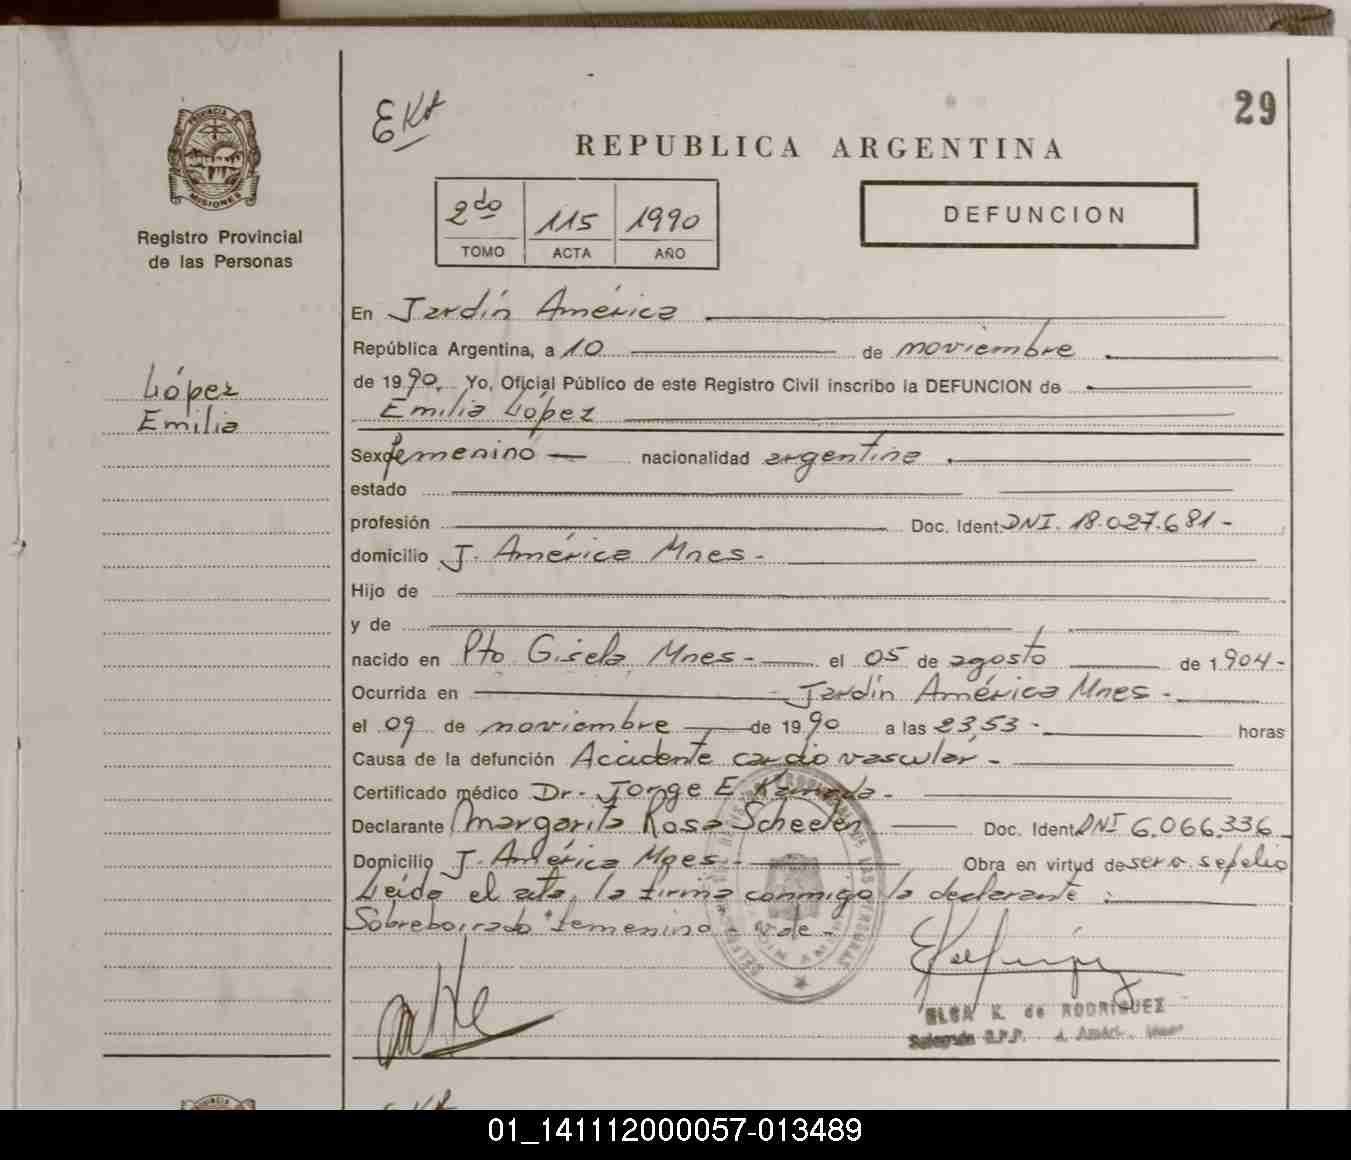 29
EKA
REPUBLICA ARGENTINA
PROVINCIA DE
MISIONES
Registro Provincial
de las Personas
2do 115 1990
TOMO ACTA AÑO
DEFUNCION
López
Emilia
En Jardín América
República Argentina, a 10 de noviembre
de 1990. Yo, Oficial Público de este Registro Civil inscribo la DEFUNCION de
Emilia López
Sexo femenino nacionalidad argentina
estado
profesión Doc. Ident. DNI. 18.027.681-
domicilio J. América Mnes-
Hijo de
y de
nacido en Pto Gisela Mnes- el 05 de agosto de 1.904-
Ocurrida en Jardín América Mnes-
el 09 de noviembre de 1990 a las 23,53- horas
Causa de la defunción Accidente cardio vascular-
Certificado médico Dr- Jorge E. Kameda-
Declarante Margarita Rosa Scheeler Doc. Ident. DNI 6.066.336
Domicilio J. América Mnes- Obra en virtud de ser o. sepelio
Leída el acta, la firma conmigo la declarante:
Sobreborrado "femenino" Vale-
ELSA K. de RODRIGUEZ
01_141112000057-013489